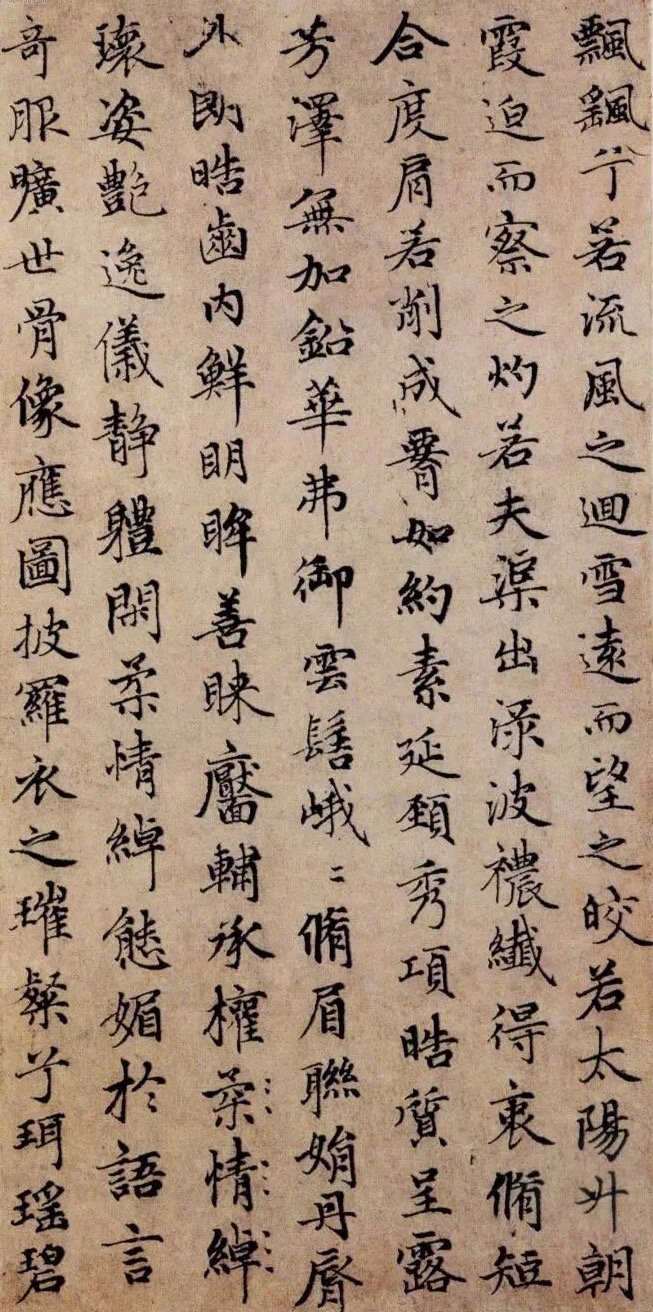 飄飖兮若流風之迴雪遠而望之皎若太陽升朝
霞迫而察之灼若夫渠出淥波襛纖得衷脩短
合度肩若削成䙅如約素延頸秀項晧質呈露
芳澤無加鉛華弗御雲髻峨〻脩眉聯娟丹脣
外朗晧齒内鮮明眸善睞靨輔承權柔情綽
瓌姿艷逸儀静軆閑柔情綽態媚於語言
奇服曠世骨像應圖披羅衣之璀粲兮珥瑶碧